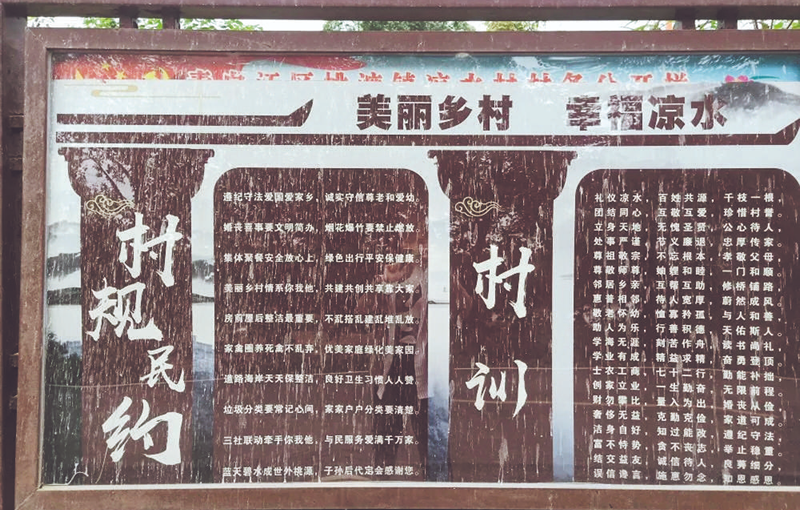 美丽乡村 幸福凉水
村规民约
遵纪守法爱国爱家乡，诚实守信尊老和爱幼。
婚丧喜事要文明简办，烟花爆竹要禁止燃放。
集体聚餐安全放心上，绿色出行平安保健康。
美丽乡村情系你我他，共建共创共享靠大家。
房前屋后整洁最重要，不乱搭乱建乱堆乱放。
家禽圈养死禽不乱弃，优美家庭绿化美家园。
道路海岸天天保整洁，良好卫生习惯人人赞。
垃圾分类要常记心间，家家户户分类要清楚。
三社联动牵手你我他，与民服务爱满千万家。
蓝天碧水成世外桃源，子孙后代定会感谢您。
村训
礼仪凉水 百姓共源 千枝一根
团结同心 互敬互爱 珍惜村誉
立身天地 无愧圣贤 公心待人
处事严谨 节义廉退 忠厚传家
尊祖敬宗 不忘根本 孝敬父母
妯娌和睦 一门和顺
互帮互助 修桥铺路
待人宽厚 蔚然成风
恤寡矜孤 与人和善
助人为乐 行善积德 天佑斯人
学海无涯 刻苦作舟 读书尚礼
学业有成 精益求精 奋勇登顶
士农工商 勤能补拙
一生勤奋 无限前程
量入为出 婚丧从俭
奢侈无益 克勤克俭 家道可成
洁身自好 知过能改 遵纪守法
举止稳重
诚信待人 良莠细分
施惠勿念 知恩感恩